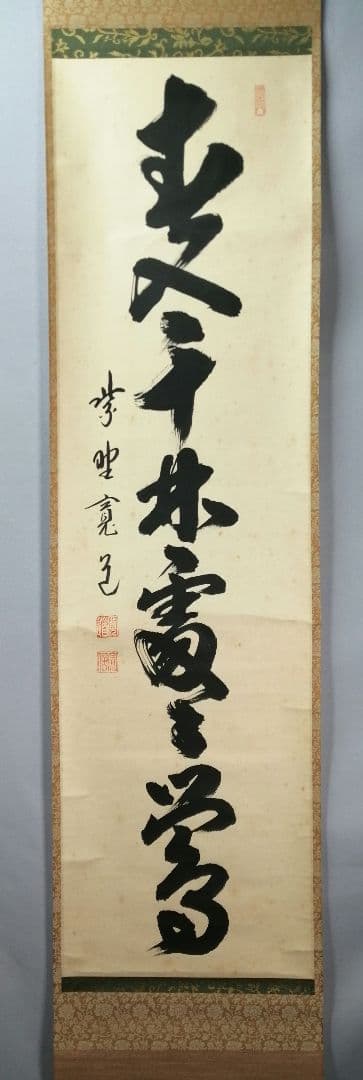 春入千林處々鶯
紫野寛道